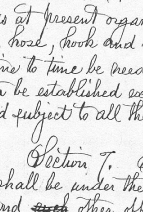 s at present organ
hose, hook and
me to time be nees
n be established eq
d subject to all th
Section 7.
shall be under the
nd such other off